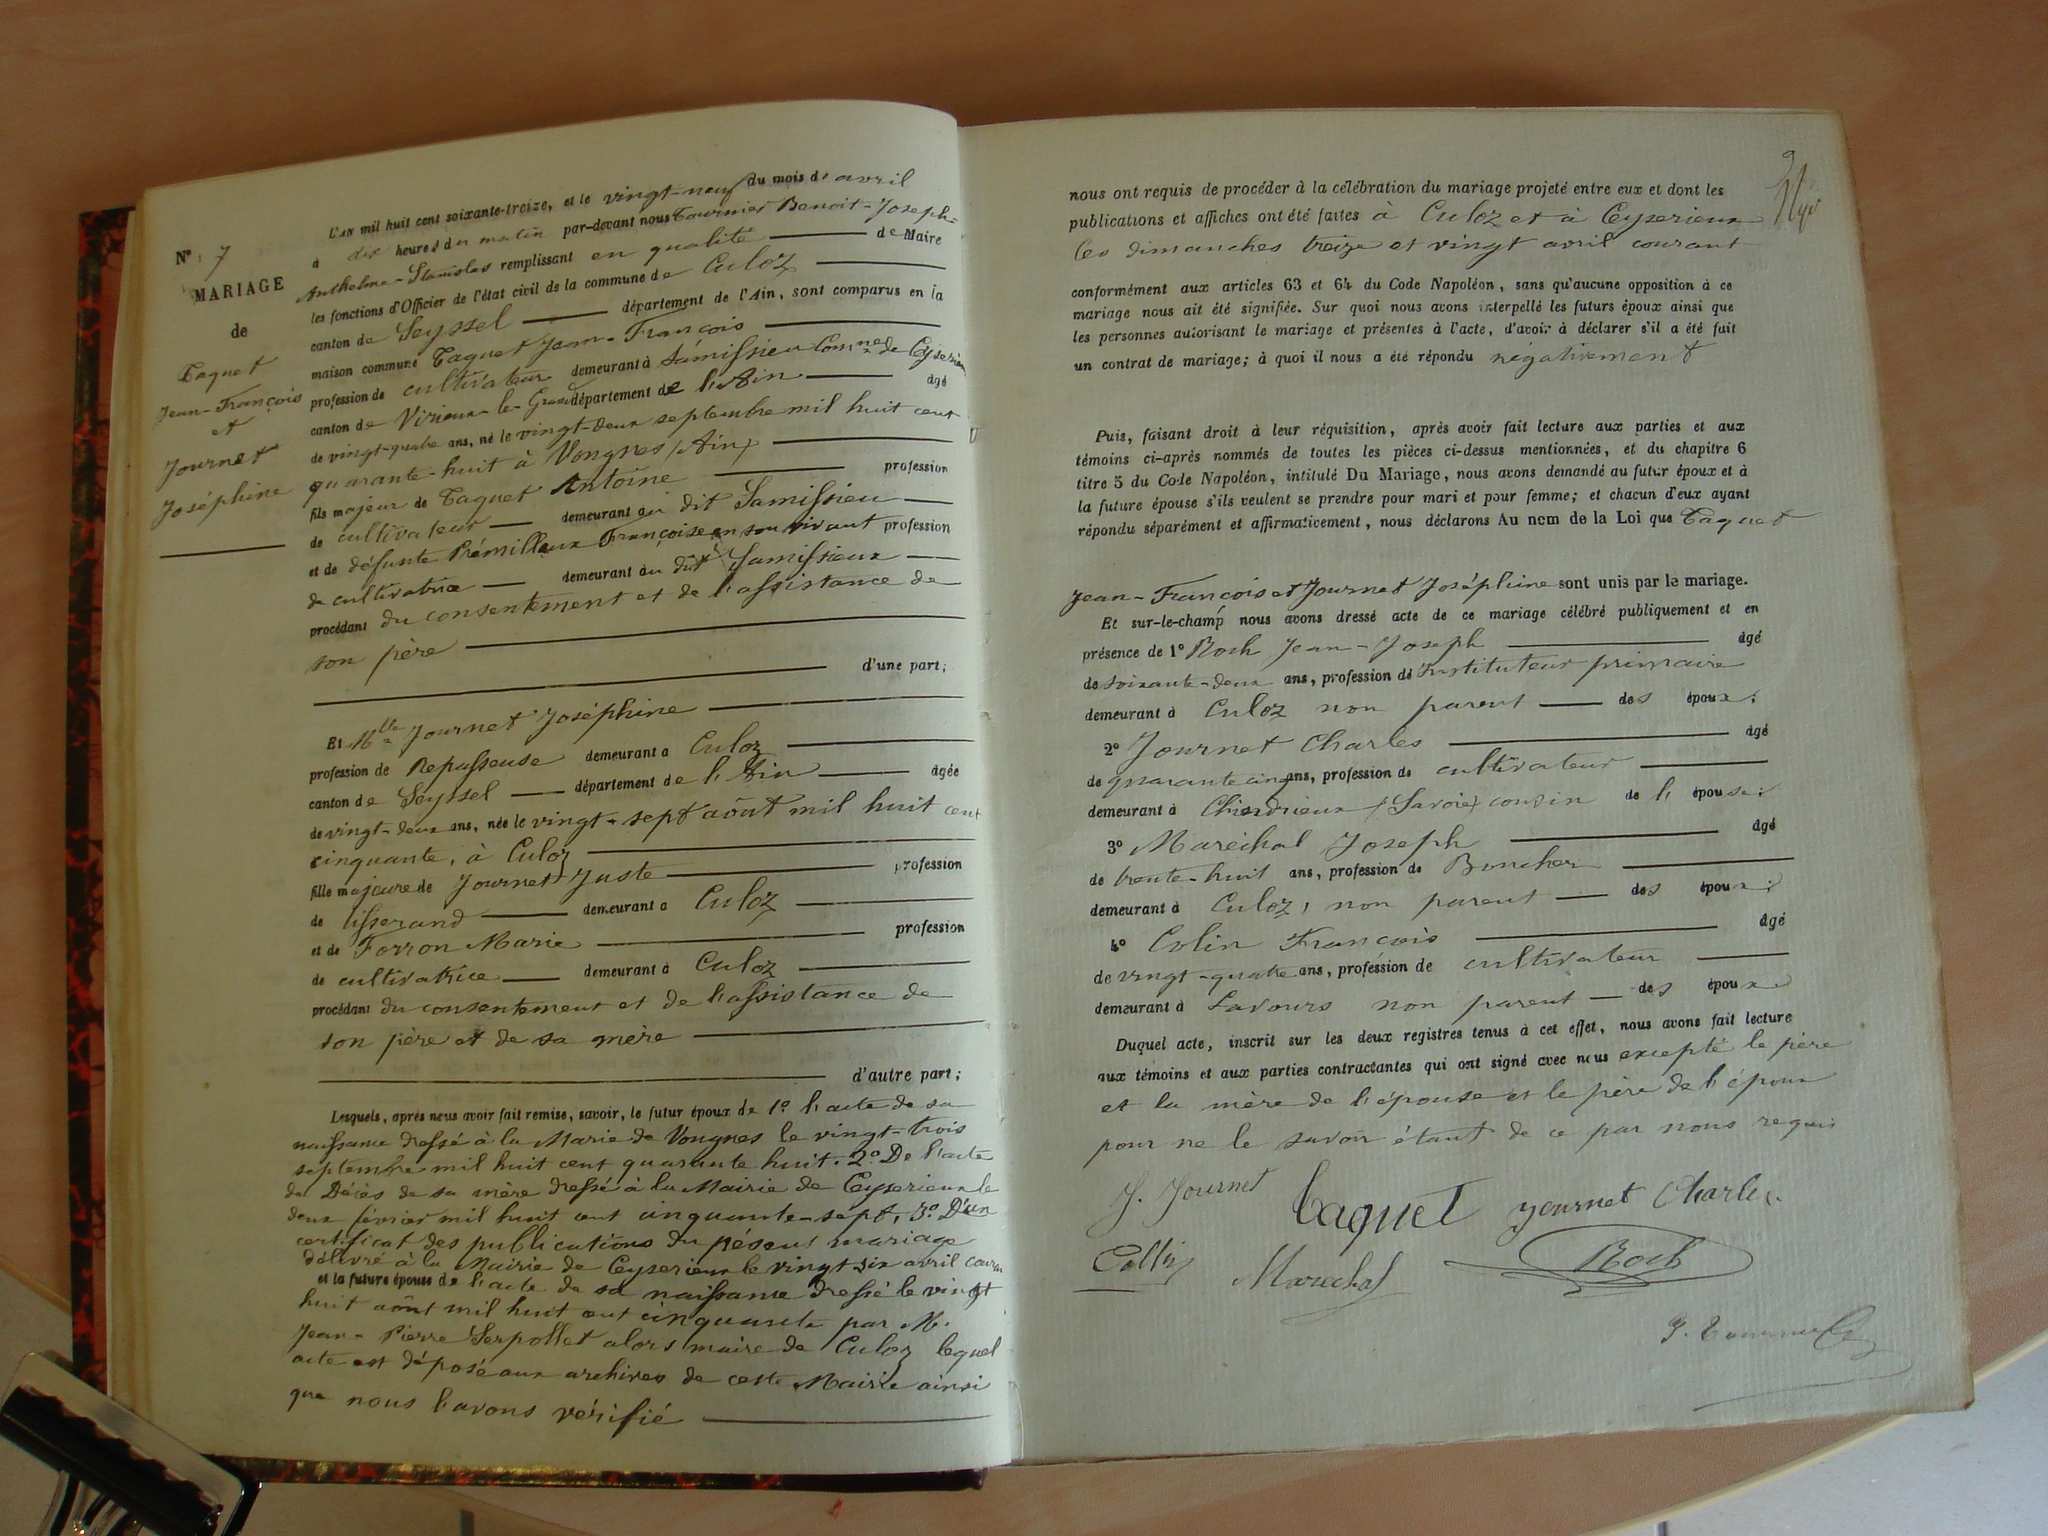 N° 7
MARIAGE
de
Taquet
Jean-François
et
Journet
Joséphine
L'AN mil huit cent soixante-treize, et le vingt-neuf du mois de avril
à dix heures du matin par-devant nous Tournier Benoit-Joseph-
Anthelme-Stanislas remplissant en qualité de Maire
les fonctions d'Officier de l'état civil de la commune de Culoz
canton de Seyssel département de l'Ain, sont comparus en la
maison commune Taquet Jean-François
profession de cultivateur demeurant à Samissieu Comne de Ceyserieu
canton de Virieux-le-Grand département de l'Ain âgé
de vingt-quatre ans, né le vingt-deux septembre mil huit cent
quarante-huit à Vongnes (Ain)
fils majeur de Taquet Antoine profession
de cultivateur demeurant au dit Samissieu
et de défunte Prémilleux Françoise en son vivant profession
de cultivatrice demeurant au dit Samissieux
procédant du consentement et de l'assistance de
son père
d'une part;
Et Mlle Journet Joséphine
profession de Repasseuse demeurant à Culoz
canton de Seyssel département de l'Ain âgée
de vingt-deux ans, née le vingt-sept août mil huit cent
cinquante, à Culoz
fille majeure de Journet Juste profession
de tisserand demeurant à Culoz
et de Forron Marie profession
de cultivatrice demeurant à Culoz
procédant du consentement et de l'assistance de
son père et de sa mère
d'autre part;
Lesquels, après nous avoir fait remise, savoir, le futur époux de 1° l'acte de sa
naissance dressé à la Marie de Vongnes le vingt-trois
septembre mil huit cent quarante huit. 2° De l'acte
de Décès de sa mère dressé à la Mairie de Ceyserieux le
deux février mil huit cent cinquante-sept, 3° D'un
certificat des publications du présent mariage
délivré à la Mairie de Ceyserieux le vingt-six avril courant
et la future épouse de l'acte de sa naissance dressé le vingt
huit août mil huit cent cinquante par M.
Jean-Pierre Serpollet alors maire de Culoz lequel
acte est déposé aux archives de cette Mairie ainsi
que nous l'avons vérifié
nous ont requis de procéder à la célébration du mariage projeté entre eux et dont les
publications et affiches ont été faites à Culoz et à Ceyserieux
les dimanches treize et vingt avril courant
conformément aux articles 63 et 64 du Code Napoléon, sans qu'aucune opposition à ce
mariage nous ait été signifiée. Sur quoi nous avons interpellé les futurs époux ainsi que
les personnes autorisant le mariage et présentes à l'acte, d'avoir à déclarer s'il a été fait
un contrat de mariage; à quoi il nous a été répondu négativement
Puis, faisant droit à leur réquisition, après avoir fait lecture aux parties et aux
témoins ci-après nommés de toutes les pièces ci-dessus mentionnées, et du chapitre 6
titre 5 du Code Napoléon, intitulé Du Mariage, nous avons demandé au futur époux et à
la future épouse s'ils veulent se prendre pour mari et pour femme; et chacun d'eux ayant
répondu séparément et affirmativement, nous déclarons Au nom de la Loi que Taquet
Jean-François et Journet Joséphine sont unis par le mariage.
Et sur-le-champ nous avons dressé acte de ce mariage célébré publiquement et en
présence de 1° Roch Jean-Joseph âgé
de soixante-deux ans, profession de Instituteur primaire
demeurant à Culoz non parent des époux;
2° Journet Charles âgé
de quarante cinq ans, profession de cultivateur
demeurant à Chindrieux (Savoie) cousin de l'épouse;
3° Maréchal Joseph âgé
de trente-huit ans, profession de Boucher
demeurant à Culoz, non parent des époux;
4° Colin François âgé
de vingt-quatre ans, profession de cultivateur
demeurant à Lavours non parent des époux
Duquel acte, inscrit sur les deux registres tenus à cet effet, nous avons fait lecture
aux témoins et aux parties contractantes qui ont signé avec nous excepté le père
et la mère de l'épouse et le père de l'époux
pour ne le savoir étant de ce par nous requis
J. Journet Taquet Journet Charles
Collin Marechal Roch